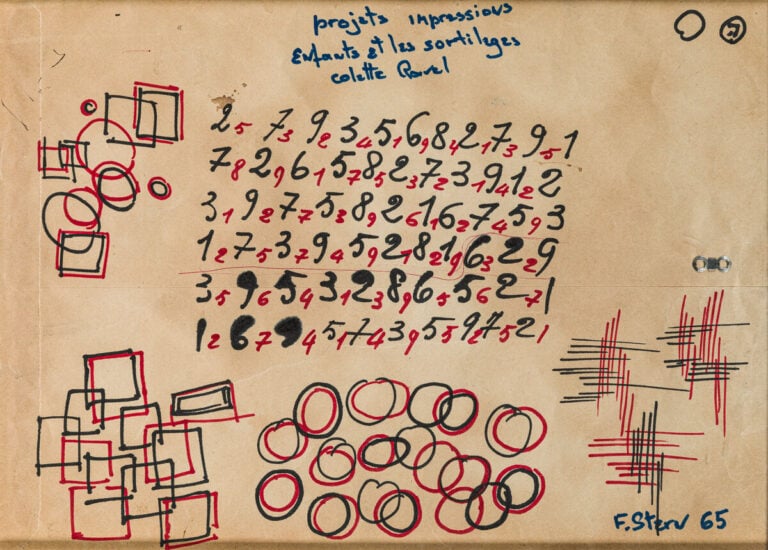 projets impressions
Enfants et les sortilèges
colette Ravel
257392345169842173951
782961578523723194122
31927753892616274593
127537945921821963229
3596543123896556271
12679451743955927521
F. Stern 65